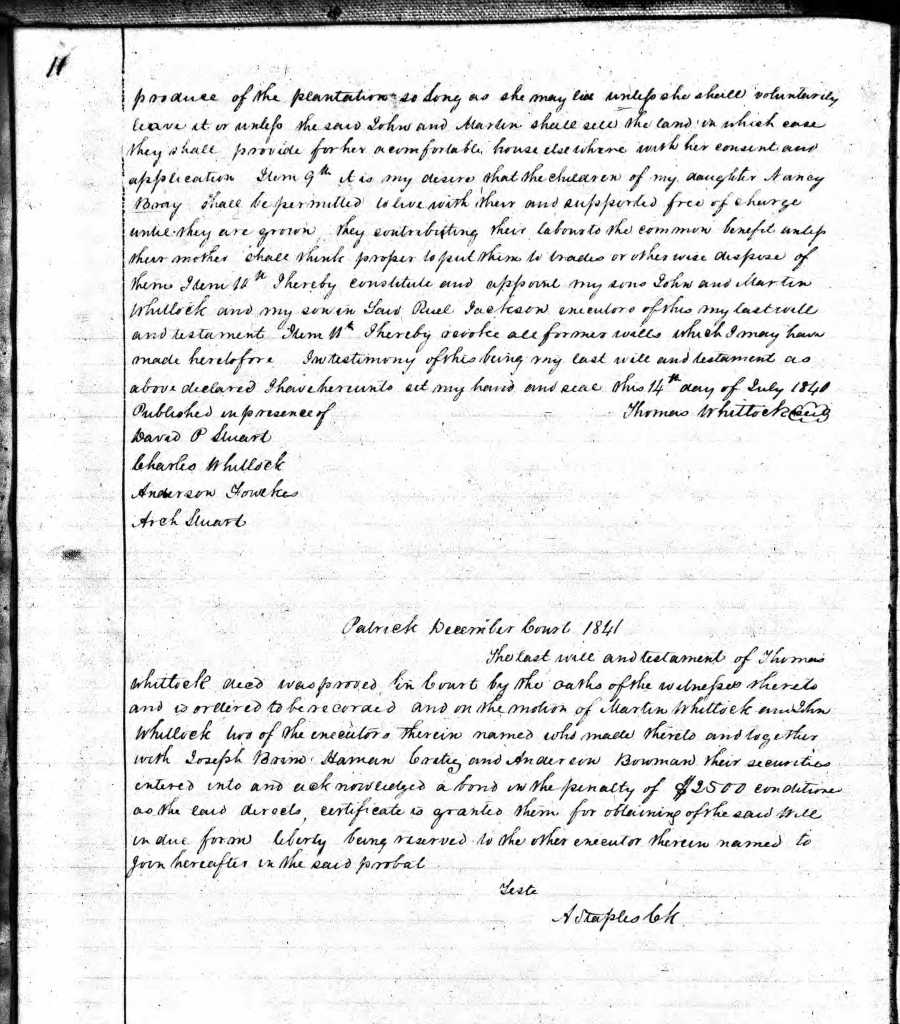 11
produce of the plantation so long as she may live unless she shall voluntarily
leave it or unless the said John and Martin shall sell the land in which case
they shall provide for her a comfortable house elsewhere with her consent and
application Item 9th it is my desire that the children of my daughter Nancy
Bray shall be permitted to live with their and supported free of charge
until they are grown they contributing their labour to the common benefit unless
their mother shall think proper to put them to trades or otherwise dispose of
them Item 10th I hereby constitute and appoint my sons John and Martin
Whitlock and my son in Law Ruel Jackson executors of this my last will
and testament Item 11th I hereby revoke all former wills which I may have
made heretofore In testimony of this being my last will and testament as
above declared I have hereunto set my hand and seal this 14th day of July 1840
Published in presence of Thomas Whitlock Seal
David P Stuart
Charles Whitlock
Anderson Fowlkes
Arch Stuart
Patrick December Court 1841
The last will and testament of Thomas
Whitlock decd was proved in Court by the oaths of the witnesses thereto
and is ordered to be recorded and on the motion of Martin Whitlock and John
Whitlock two of the executors therein named who made thereto and together
with Joseph Brim Haman and Anderson Bowman their securities
entered into and acknowledged a bond in the penalty of $2500 conditione
as the law directs, certificate is granted them for obtaining of the said Will
in due form liberty being reserved to the other executor therein named to
Join hereafter in the said probat
Teste
A Staples Ck